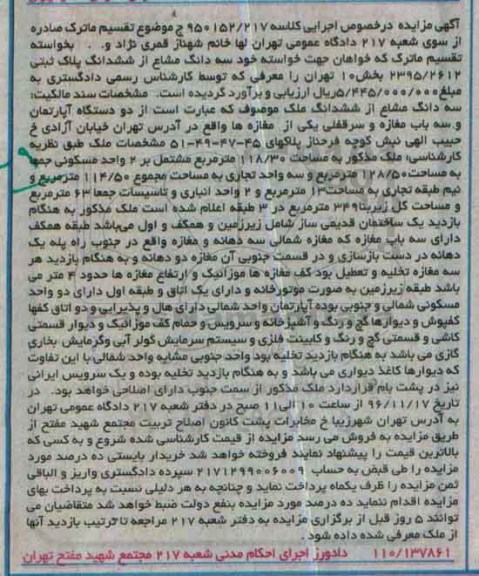 آگهی مزایده درخصوص اجرایی کلاسه ۹۵۰۱۵۲/۲۱۷ ج موضوع تقسیم ماترک صادره
از سوی شعبه ۲۱۷ دادگاه عمومی تهران لها خانم شهناز قمری نژاد و. . بخواسته
تقسیم ماترک که خواهان جهت خواسته خود سه دانگ مشاع از ششدانگ پلاک ثبتی
۲۳۹۵/۲۶۱۲ بخش۱۰ تهران را معرفی که توسط کارشناس رسمی دادگستری به
مبلغ۵/۴۴۵/۰۰۰/۰۰۰ریال ارزیابی و برآورد گردیده است. مشخصات سند مالکیت:
سه دانگ مشاع از ششدانگ ملک موصوف که عبارت است از دو دستگاه آپارتمان
و سه باب مغازه و سرقفلی یکی از مغازه ها واقع در آدرس تهران خیابان آزادی خ
حبیب الهی نبش کوچه فرحناز پلاکهای ۴۵-۴۷-۴۹-۵۱ مشخصات ملک طبق نظریه
کارشناسی: ملک مذکور به مساحت ۱۱۸/۳۰ مترمربع مشتمل بر ۲ واحد مسکونی جمعا
به مساحت۱۲۸/۵۰ مترمربع و سه واحد تجاری به مساحت مجموع ۱۱۴/۵۰ مترمربع و
نیم طبقه تجاری به مساحت۱۳ مترمربع و ۲ واحد انباری و تاسیسات جمعا ۶۳ مترمربع
و مساحت کل زیربنا۳۴۹ مترمربع در ۳ طبقه اعلام شده است ملک مذکور به هنگام
بازدید یک ساختمان قدیمی ساز شامل زیرزمین و همکف و اول می‌باشد طبقه همکف
دارای سه باب مغازه که مغازه شمالی سه دهانه و مغازه واقع در جنوب راه پله یک
دهانه در دست بازسازی و در قسمت جنوبی آن مغازه دو دهانه و به هنگام بازدید هر
سه مغازه تخلیه و تعطیل بود کف مغازه ها موزائیک و ارتفاع مغازه ها حدود ۴ متر می
باشد طبقه زیرزمین به صورت موتورخانه و دارای یک اتاق و طبقه اول دارای دو واحد
مسکونی شمالی و جنوبی بوده آپارتمان واحد شمالی دارای هال و پذیرایی و دو اتاق کفها
کفپوش و دیوارها گچ و رنگ و آشپزخانه و سرویس و حمام کف موزائیک و دیوار قسمتی
کاشی و قسمتی گچ و رنگ و کابینت فلزی و سیستم سرمایش کولر آبی وگرمایش بخاری
گازی می باشد به هنگام بازدید تخلیه بود واحد جنوبی مشابه واحد شمالی با این تفاوت
که دیوارها کاغذ دیواری می باشد و به هنگام بازدید تخلیه بوده و یک سرویس ایرانی
نیز در پشت بام قراردارد ملک مذکور از سمت جنوب دارای اصلاحی خواهد بود. در
تاریخ ۹۶/۱۱/۱۷ از ساعت ۱۰ الی۱۱ صبح در دفتر شعبه ۲۱۷ دادگاه عمومی تهران
به آدرس تهران شهرزیبا خ مخابرات پشت کانون اصلاح تربیت مجتمع شهید مفتح از
طریق مزایده به فروش می رسد مزایده از قیمت کارشناسی شده شروع و به کسی که
بالاترین قیمت را پیشنهاد نمایند فروخته خواهد شد خریدار بایستی ده درصد مورد
مزایده را طی قبض به حساب ۲۱۷۱۲۹۹۰۰۶۰۰۹ سپرده دادگستری واریز و الباقی
ثمن مزایده را ظرف یکماه پرداخت نماید و چنانچه به هر دلیلی نسبت به پرداخت بهای
مزایده اقدام ننماید ده درصد مورد مزایده بنفع دولت ضبط خواهد شد متقاضیان می
توانند ۵ روز قبل از برگزاری مزایده به دفتر شعبه ۲۱۷ مراجعه تا ترتیب بازدید آنها
از ملک معرفی شده داده شود.
۱۱۰/۱۳۷۸۶۱ دادورز اجرای احکام مدنی شعبه ۲۱۷ مجتمع شهید مفتح تهران